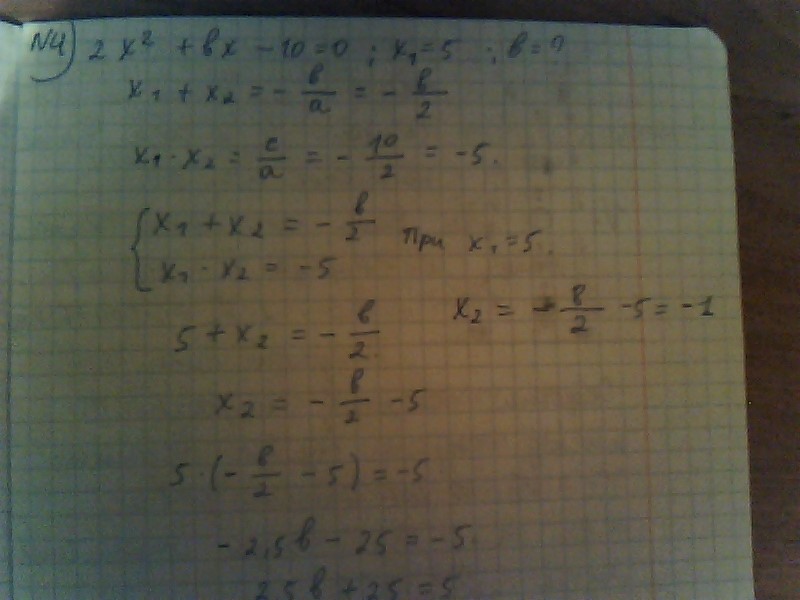 №4) 2x² + bx - 10 = 0 ; x₁ = 5 ; b = ?
x₁ + x₂ = - b/a = - b/2
x₁ · x₂ = c/a = - 10/2 = -5.
{ x₁ + x₂ = - b/2
x₁ · x₂ = -5
При x₁ = 5.
5 + x₂ = - b/2
x₂ = - 8/2 - 5 = -1
x₂ = - b/2 - 5
5 · (- b/2 - 5) = -5
- 2,5b - 25 = -5.
2,5b + 25 = 5